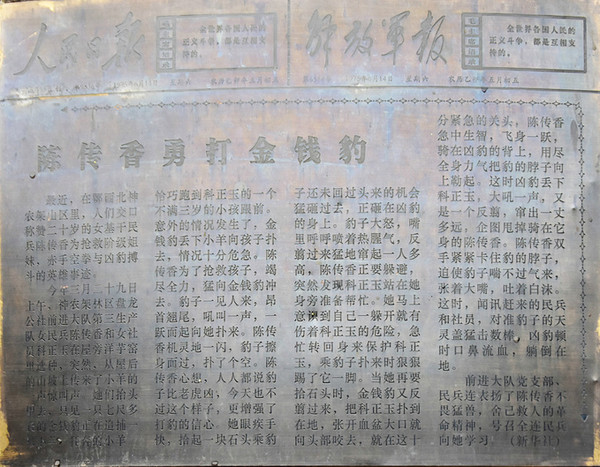 人民日报
全世界各国人民的
正义斗争，都是互相支
持的。
星期六
农历乙卯年五月初五
解放军报
全世界各国人民的
正义斗争，都是互相支
持的。
月14日
星期六
农历乙卯年五月初五
陈传香勇打金钱豹
最近，在鄂西北神
农架山区里，人们交口
称赞二十岁的女基干民
兵陈传香为抢救阶级姐
妹，赤手空拳与凶豹搏
斗的英雄事迹。
今年三月二十九日
上午，神农架林区盘龙
公社前进大队第三生产
队女民兵陈传香和女社
员科正玉在
进种，突然，从屋后
的山坡上传来了小羊的
声惨叫声。她们抬头
只见一只七尺多
的金钱豹正在追捕一
的小羊，
恰巧跑到科正玉的一个
不满三岁的小孩跟前。
意外的情况发生了，金
钱豹丢下小羊向孩子扑
去，情况十分危急。陈
传香为了抢救孩子，竭
尽全力，猛向金钱豹冲
去。豹子一见人来，昂
首翘尾，吼叫一声，一
跃而起向她扑来。陈传
香机灵地一闪，豹子擦
身而过，扑了个空。陈
传香心想，人人都说豹
子比老虎凶，今天也不
过这个样子，更增强了
打豹的信心。她眼疾手
快，拾起一块石头乘豹
子还未回过头来的机会
猛砸过去，正砸在凶豹
的身上。豹子大怒，嘴
里呼呼喷着热腥气，反
剪过来猛地窜起一人多
高，陈传香正要躲避，
突然发现科正玉站在她
身旁准备帮忙。她马上
意识到自己一躲开就有
伤着科正玉的危险，急
忙转回身来保护科正
玉，乘豹子扑来时狠狠
踢了它一脚。当她再要
拾石头时，金钱豹又反
剪过来，把科正玉扑到
在地，张开血盆大口就
向头部咬去，就在这十
分紧急的关头，陈传香
急中生智，飞身一跃，
骑在凶豹的背上，用尽
全身力气把豹的脖子向
上勒起。这时凶豹丢下
科正玉，大吼一声，又
是一个反剪，窜出一丈
多远，企图甩掉骑在它
身的陈传香。陈传香双
手紧紧卡住豹的脖子，
迫使豹子喘不过气来，
张着大嘴，吐着白沫。
这时，闻讯赶来的民兵
和社员，对准豹子的天
灵盖猛击数棒，凶豹顿
时口鼻流血，躺倒在
地。
前进大队党支部、
民兵连表扬了陈传香不
畏猛兽，舍己救人的革
命精神，号召全连民兵
向她学习。（新华社）